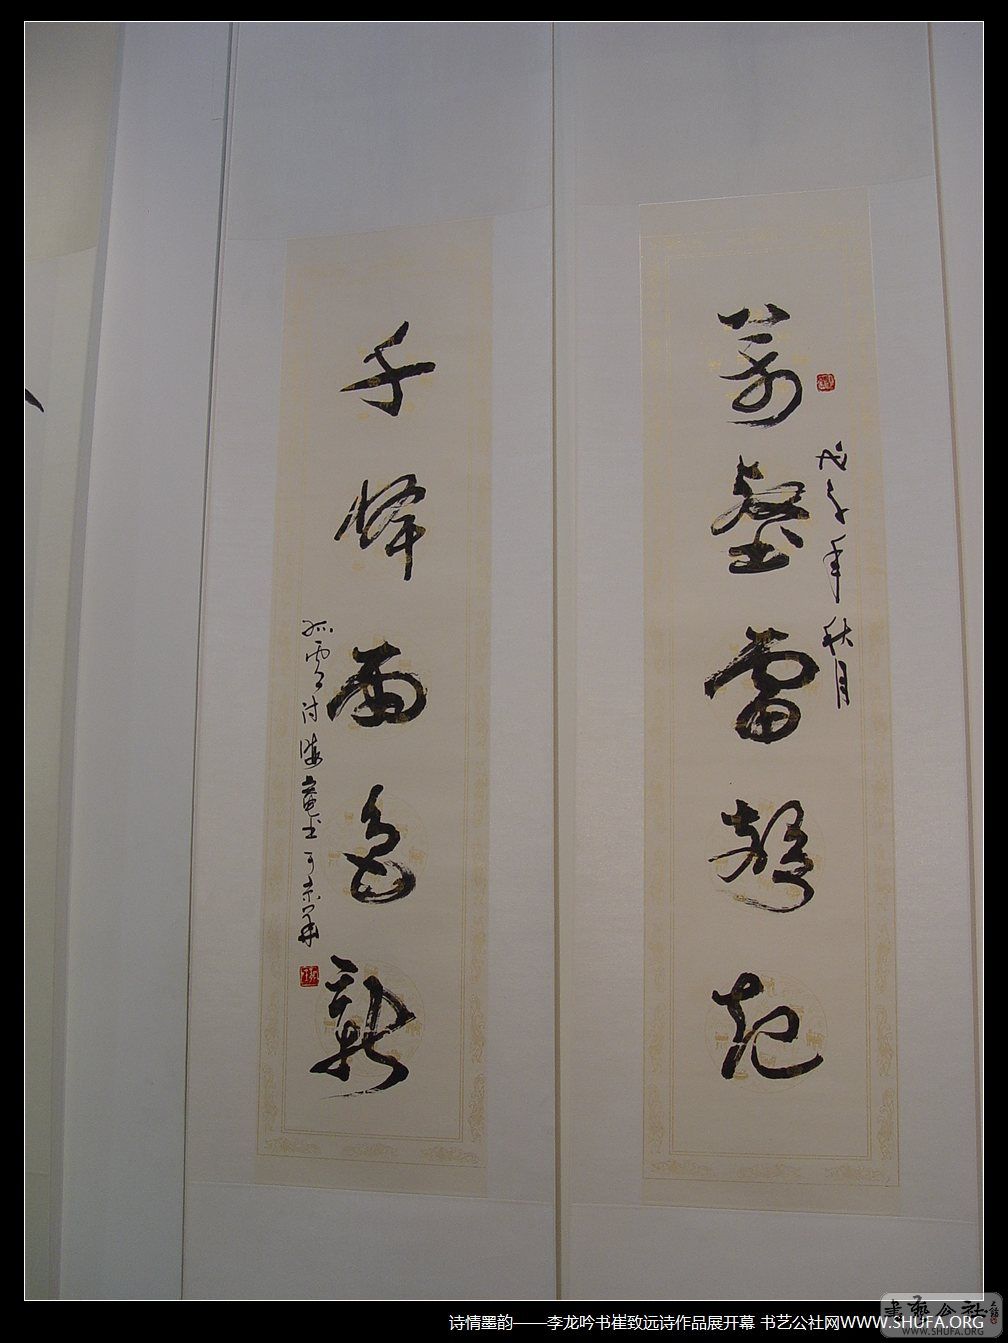 萬壑雷聲起
戊子年秋月
千峰雨色新
孤雲詩
诗情墨韵——李龙吟书崔致远诗作品展开幕 书艺公社网WWW.SHUFA.ORG
书艺公社
WWW.SHUFA.ORG